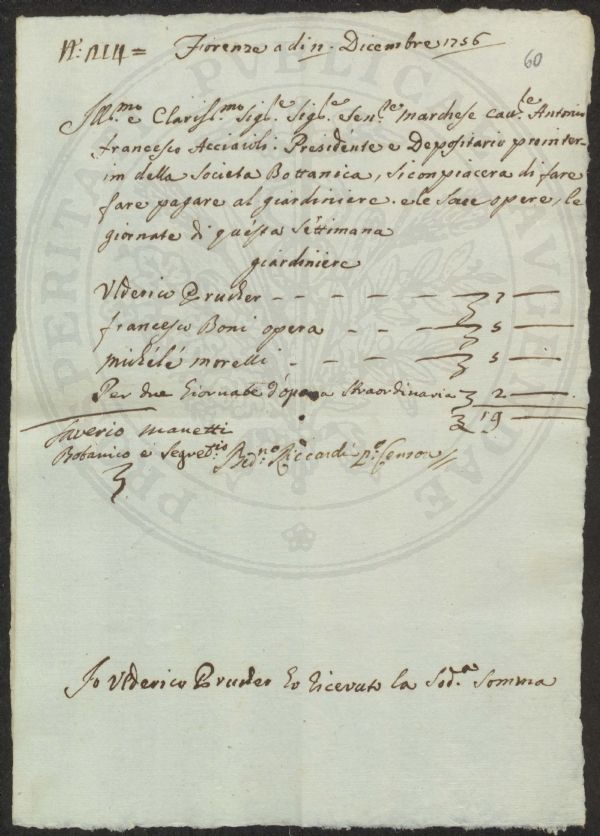 N.° 214 = Fiorenze a di 11. Dicembre 1756
60
Ill.mo e Clariss.mo Sig.e Sig.e Sen.e Marchese Cau.le Antonio
francesco Acciaioli. Presidente e Depositario prointer-
im della Societa Bottanica, si compiacera di fare
fare pagare al giardiniere. e le opere, le
giornate di questa settimana
giardiniere
Vlderico Prucker - - - - - 7 —
francesco Boni opera - - - 5 —
michéle morelli - - - 5 —
Per due Giornate d'opera straordinaria 2 —
19 —
Saverio Manetti
Botanico e Segret.rio Bed.no Riccardi P.o Censore //
Io Vlderico Prucker ho ricevuto la Sod.a Somma
PERITA PUBLICA AUGETAE PR